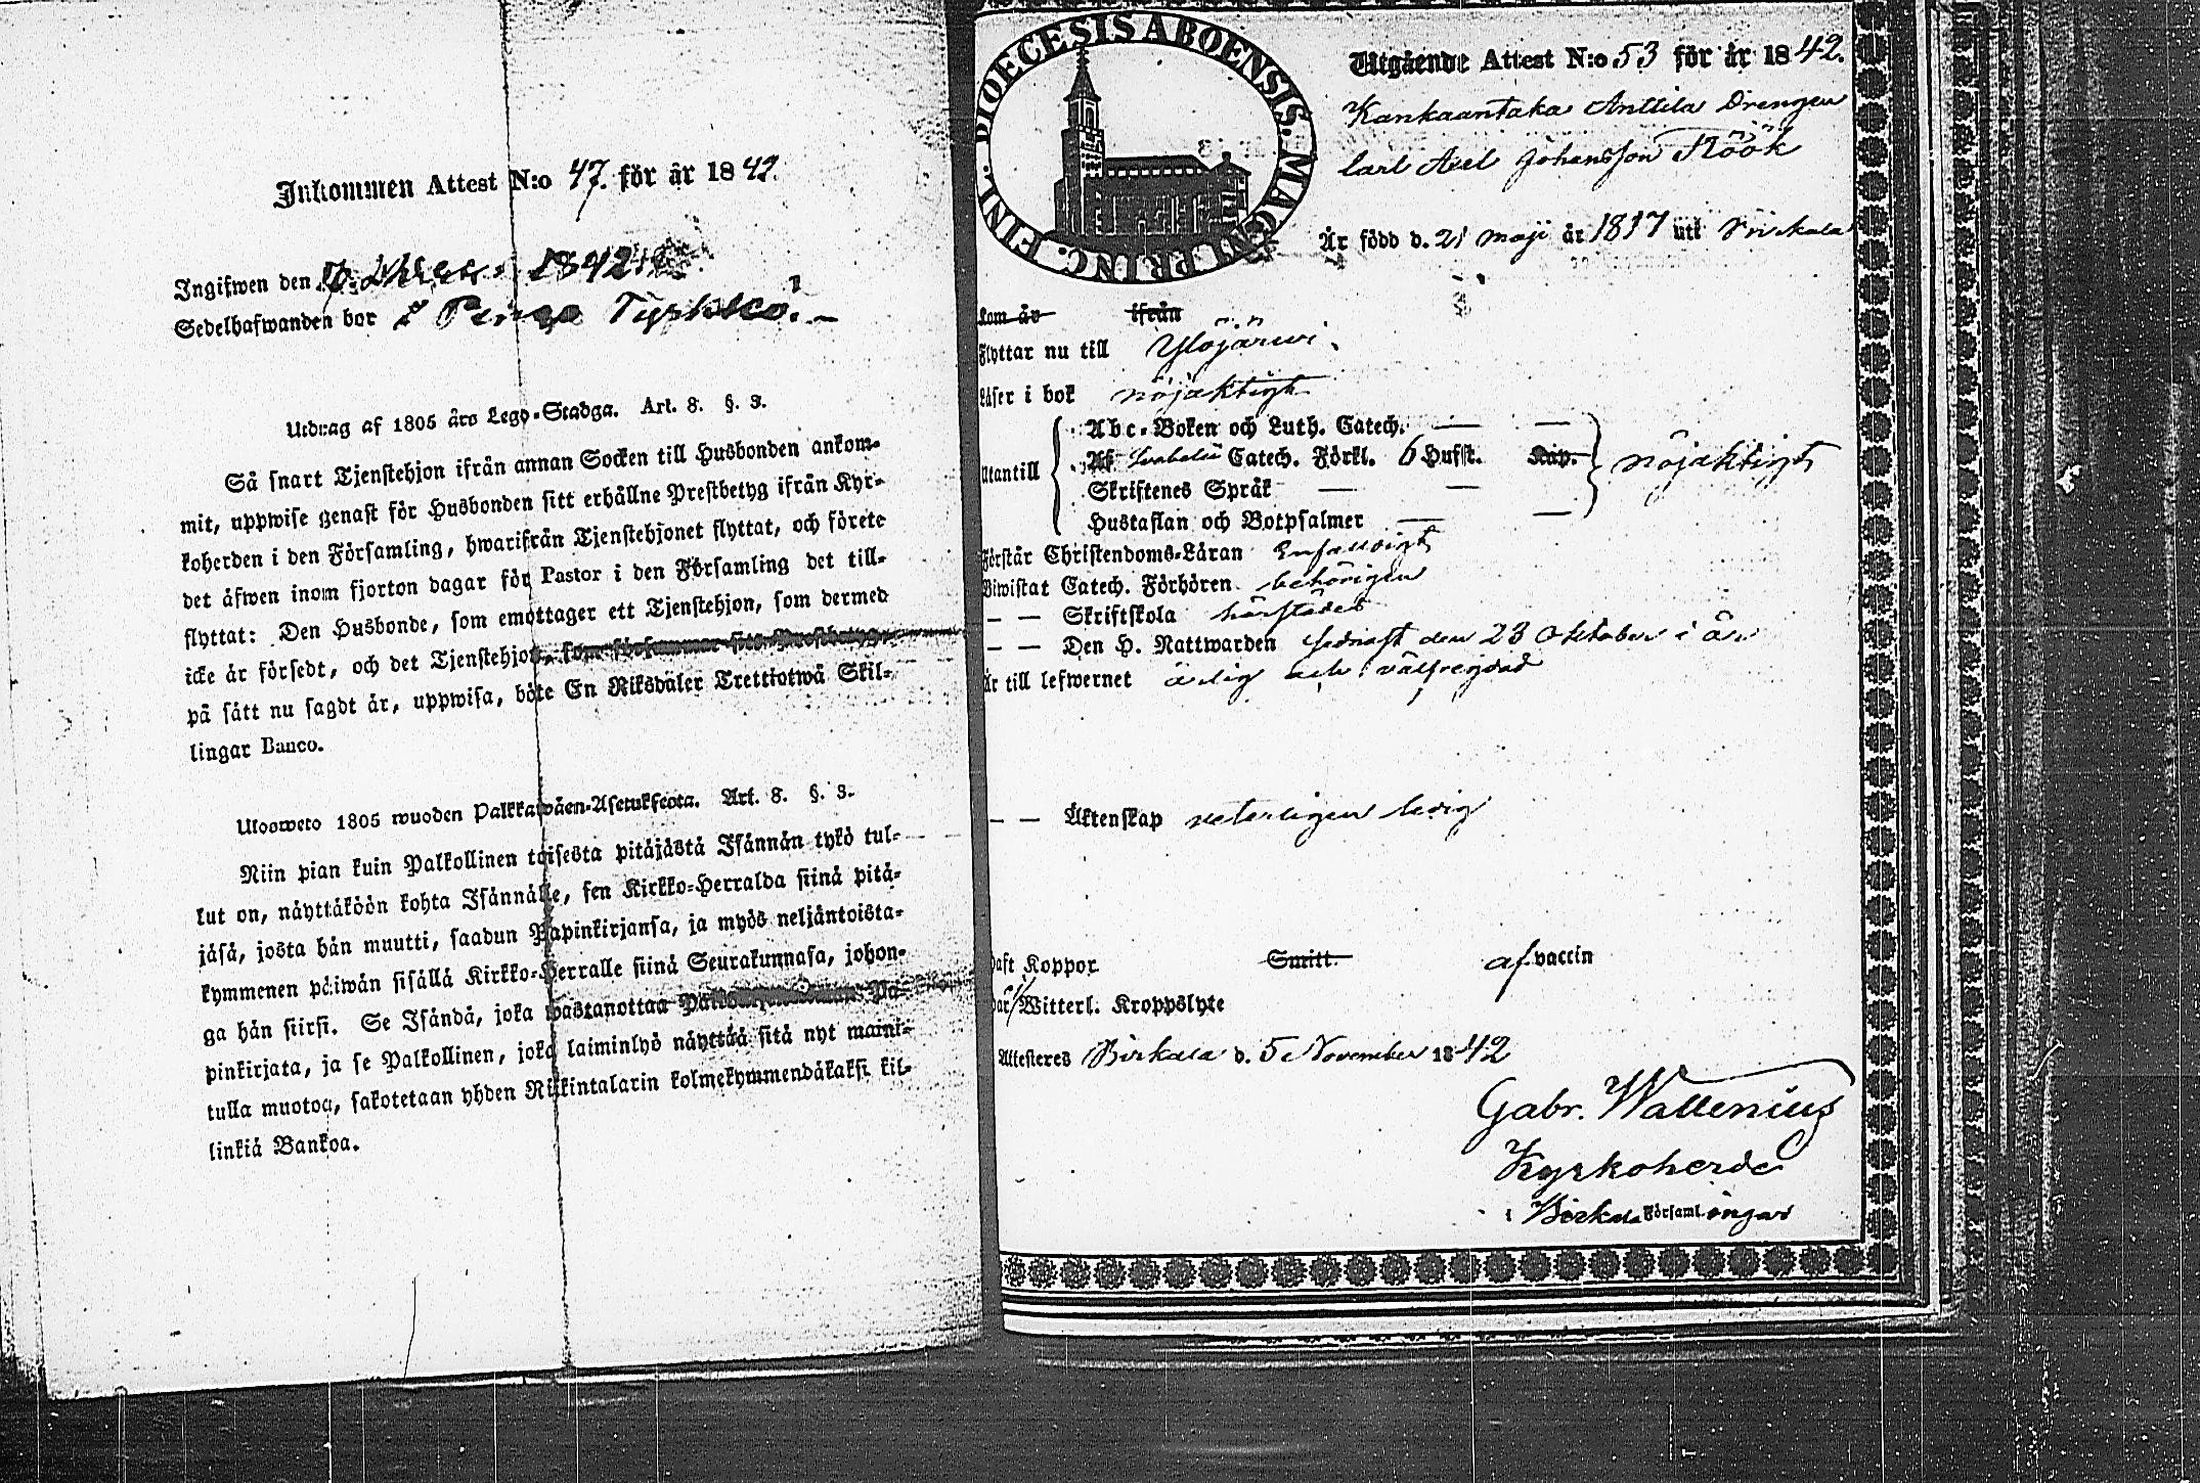 Inkommen Attest N:o 47. för år 1842.
Ingifwen den 1842
Sedelhafwanden bor i
Utdrag af 1805 års Lego-Stadga. Art. 8. §. 3.
Så snart Tjenstehjon ifrån annan Socken till Husbonden ankom-
mit, uppwise genast för Husbonden sitt erhållne Prestbetyg ifrån Kyr-
koherden i den Församling, hwarifrån Tjenstehjonet flyttat, och förete
det äfwen inom fjorton dagar för Pastor i den Församling det till-
flyttat: Den Husbonde, som emottager ett Tjenstehjon, som dermed
icke är försedt, och det Tjenstehjon, som försummar sitt Prestbetyg,
på sätt nu sagdt är, uppwisa, böte En Riksdaler Trettiotwå Skil-
lingar Banco.
Uloswето 1805 wuoden Palkkawäen-Asetuksesta. Art. 8. §. 3.
Niin pian kuin Palkollinen toisesta pitäjästä Isännän tykö tul-
lut on, näyttäköön kohta Isännälle, sen Kirkko-Herralda siinä pitä-
jäsä, josta hän muutti, saadun Papinkirjansa, ja myös neljäntoista-
kymmenen päiwän sisällä Kirkko-Herralle siinä Seurakunnasa, johon-
ga hän siirsi. Se Isändä, joka wastanottaa Pa-
pinkirjata, ja se Palkollinen, joka laiminlyö näyttää sitä nyt maini-
tulla muotoa, sakotetaan yhden Riikintalarin kolmekymmendäkaksi kil-
linkiä Bankoa.
DIOECESIS ABOENSIS. MAGNI PRINC. FINL.
Utgående Attest N:o 53 för år 1842.
Kankaantaka Anttila Drengen
Carl Axel Johansson Röök
Är född d. 21 Maji år 1817 uti Birkala
kom år ifrån
Flyttar nu till Ylöjärwi.
Läser i bok nöjaktigt
Utantill Abc-Boken och Luth. Catech. — —
Af Svebelii Catech. Förkl. 6 Hufst. Kap. nöjaktigt
Skriftenes Språk — —
Hustaflan och Botpsalmer — —
Förstår Christendoms-Läran Enfaldigt
Biwistat Catech. Förhören behörigen
— — Skriftskola härstädes
— — Den H. Nattwarden sednast den 23 Oktober i år
Är till lefwernet ärlig och välfrejdad
— — Äktenskap veterligen ledig
Haft Koppor Smitt. af vaccin
Har Witterl. Kroppslyte
Attesteres Birkala d. 5 November 1842
Gabr. Wallenius
Kyrkoherde
i Birkala Församlingar